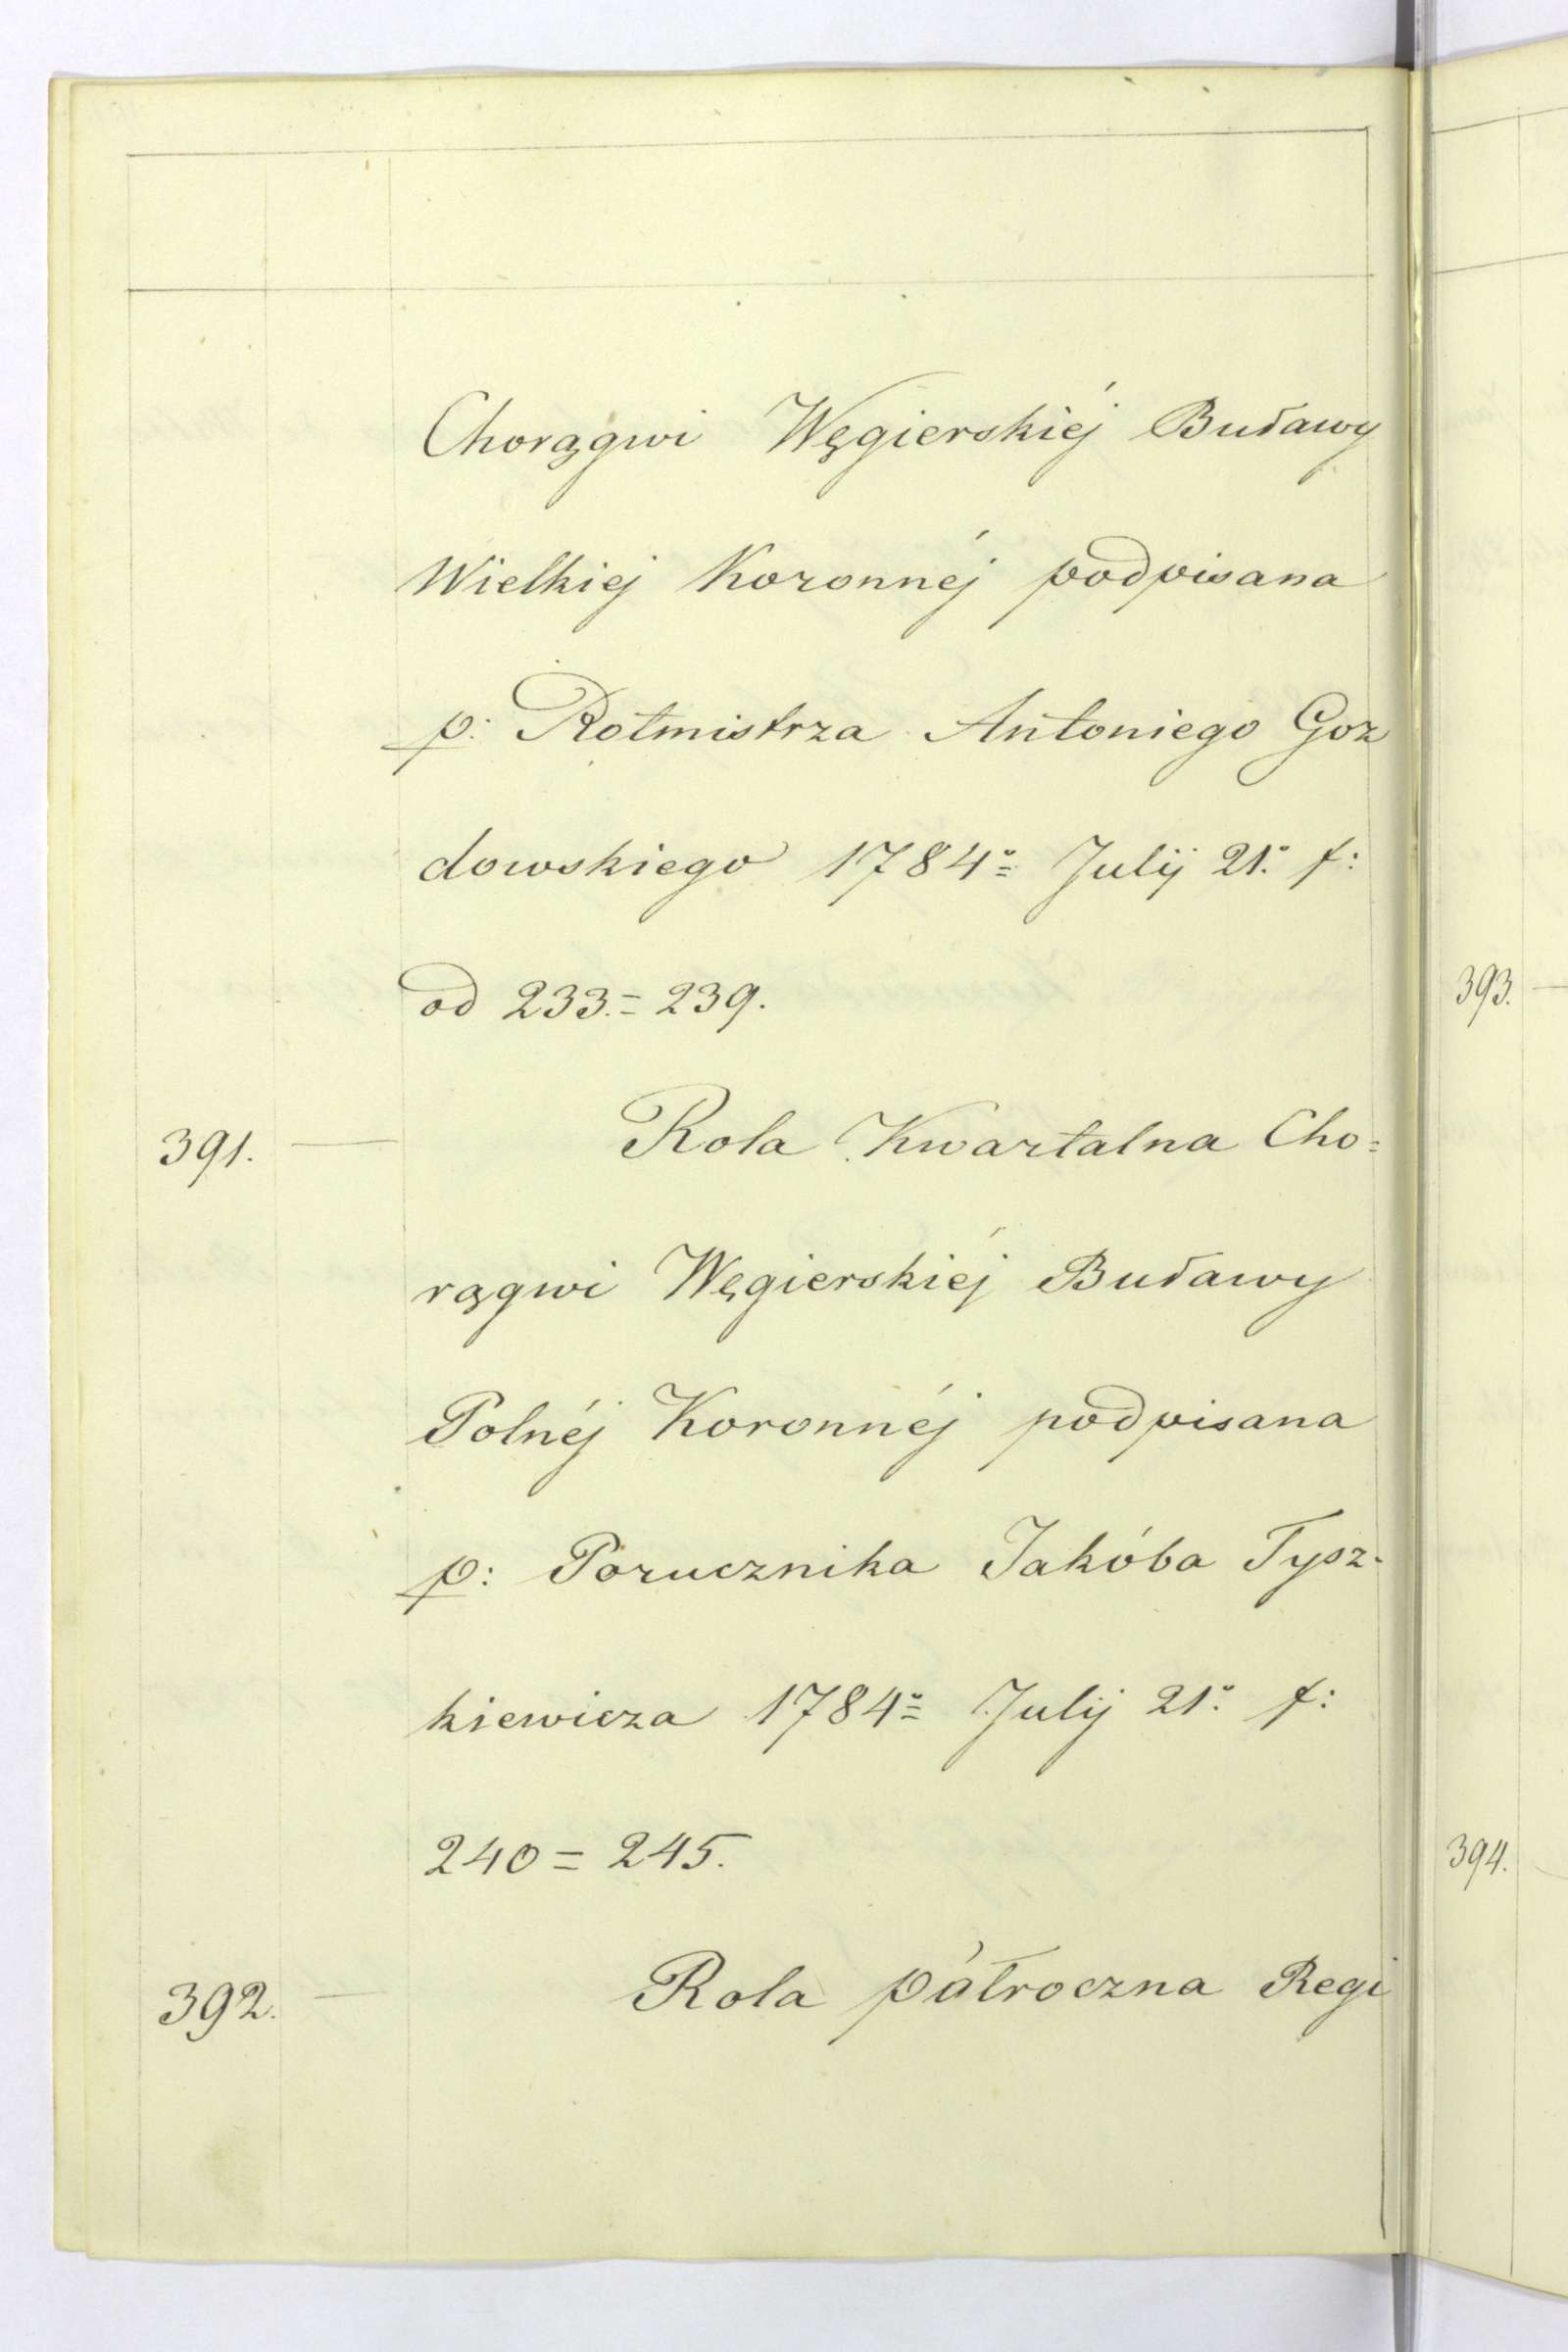 Chorągwi Węgierskiéj Buławy
Wielkiej Koronnéj podpisana
p: Rotmistrza Antoniego Goz
dowskiego 1784º Julij 21º f:
od 233.=239.
391. — Rola Kwartalna Cho=
rągwi Węgierskiéj Buławy
Polnéj Koronnéj podpisana
p: Porucznika Jakóba Tysz-
kiewicza 1784º Julij 21º f:
240=245.
392. — Rola półroczna Regi
393. —
394.